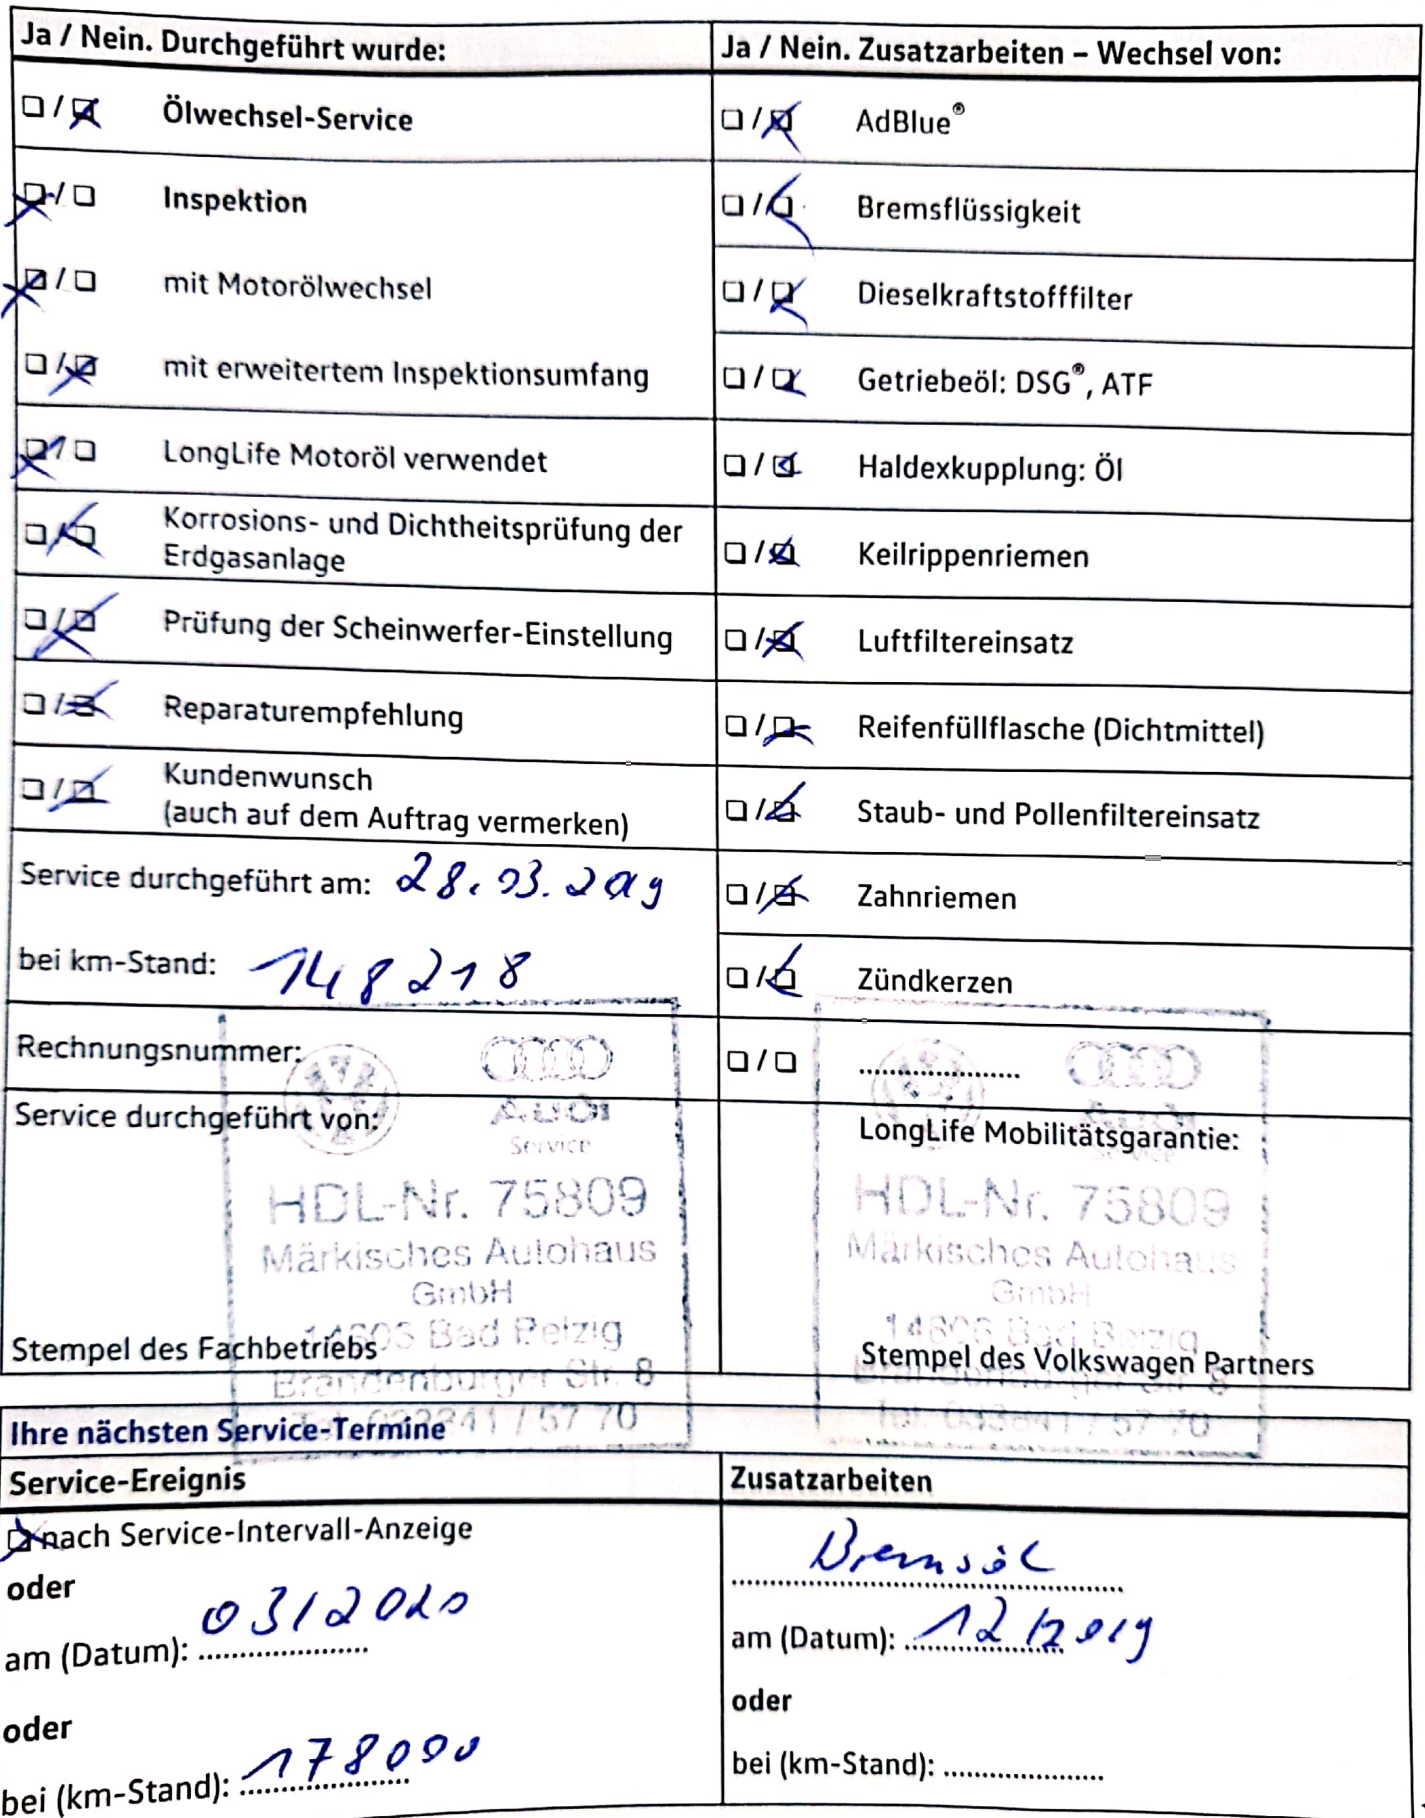 Ja / Nein. Durchgeführt wurde:
☐ / ☒ Ölwechsel-Service
☒ / ☐ Inspektion
☒ / ☐ mit Motorölwechsel
☐ / ☒ mit erweitertem Inspektionsumfang
☒ / ☐ LongLife Motoröl verwendet
☐ / ☒ Korrosions- und Dichtheitsprüfung der
Erdgasanlage
☐ / ☒ Prüfung der Scheinwerfer-Einstellung
☐ / ☒ Reparaturempfehlung
☐ / ☒ Kundenwunsch
(auch auf dem Auftrag vermerken)
Service durchgeführt am: 28.03.2019
bei km-Stand: 148218
Rechnungsnummer:
Service durchgeführt von:
Audi
Service
HDL-Nr. 75809
Märkisches Autohaus
GmbH
14806 Bad Belzig
Brandenburger Str. 8
Tel. 033841 / 57 70
Stempel des Fachbetriebs
Ja / Nein. Zusatzarbeiten – Wechsel von:
☐ / ☒ AdBlue®
☐ / ☒ Bremsflüssigkeit
☐ / ☒ Dieselkraftstofffilter
☐ / ☒ Getriebeöl: DSG®, ATF
☐ / ☒ Haldexkupplung: Öl
☐ / ☒ Keilrippenriemen
☐ / ☒ Luftfiltereinsatz
☐ / ☒ Reifenfüllflasche (Dichtmittel)
☐ / ☒ Staub- und Pollenfiltereinsatz
☐ / ☒ Zahnriemen
☐ / ☒ Zündkerzen
☐ / ☐ ....................
LongLife Mobilitätsgarantie:
Audi
Service
HDL-Nr. 75809
Märkisches Autohaus
GmbH
14806 Bad Belzig
Brandenburger Str. 8
Tel. 033841 / 57 70
Stempel des Volkswagen Partners
Ihre nächsten Service-Termine
Service-Ereignis
☒ nach Service-Intervall-Anzeige
oder
am (Datum): 03/2020
oder
bei (km-Stand): 178000
Zusatzarbeiten
Bremsöl
am (Datum): 12/2019
oder
bei (km-Stand): ....................